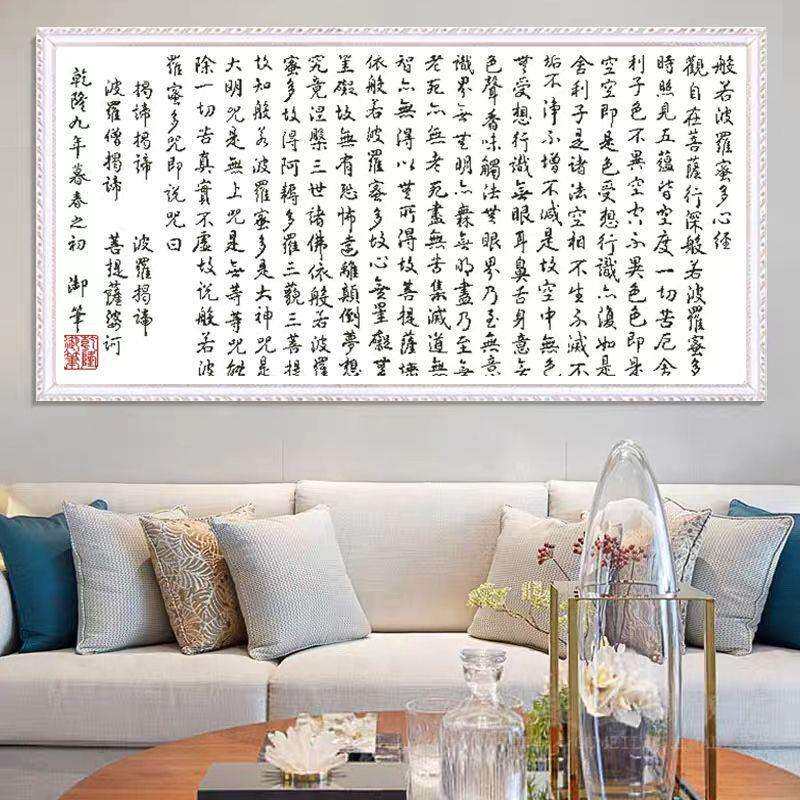 般若波羅蜜多心经
觀自在菩薩行深般若波羅蜜多
時照見五蘊皆空度一切苦厄舍
利子色不異空空不異色色即是
空空即是色受想行識亦復如是
舍利子是諸法空相不生不滅不
垢不淨不增不减是故空中無色
無受想行識無眼耳鼻舌身意無
色聲香味觸法無眼界乃至無意
識界無無明亦無無明盡乃至無
老死亦無老死盡無苦集滅道無
智亦無得以無所得故菩提薩埵
依般若波羅蜜多故心無罣礙無
罣礙故無有恐怖遠離顛倒夢想
究竟涅槃三世諸佛依般若波羅
蜜多故得阿耨多羅三藐三菩提
故知般若波羅蜜多是大神咒是
大明咒是無上咒是無等等咒能
除一切苦真實不虛故說般若波
羅蜜多咒即說咒曰
揭諦揭諦 波羅揭諦
波羅僧揭諦 菩提薩婆訶
乾隆九年暮春之初 御筆
乾隆御筆